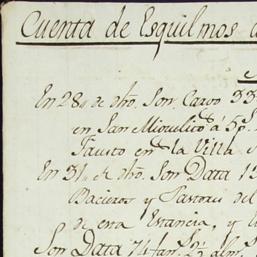 Cuenta de Esquilmos
En 28,, de dho. Son Cargo 33
en San Miguelico á 5 p.s
Fausto en la Villa
En 31,, de dho. Son Data 15
Bacieros y Pastores del
de esta Estancia, y
Son Data 74 fan.s 2½ alm.s